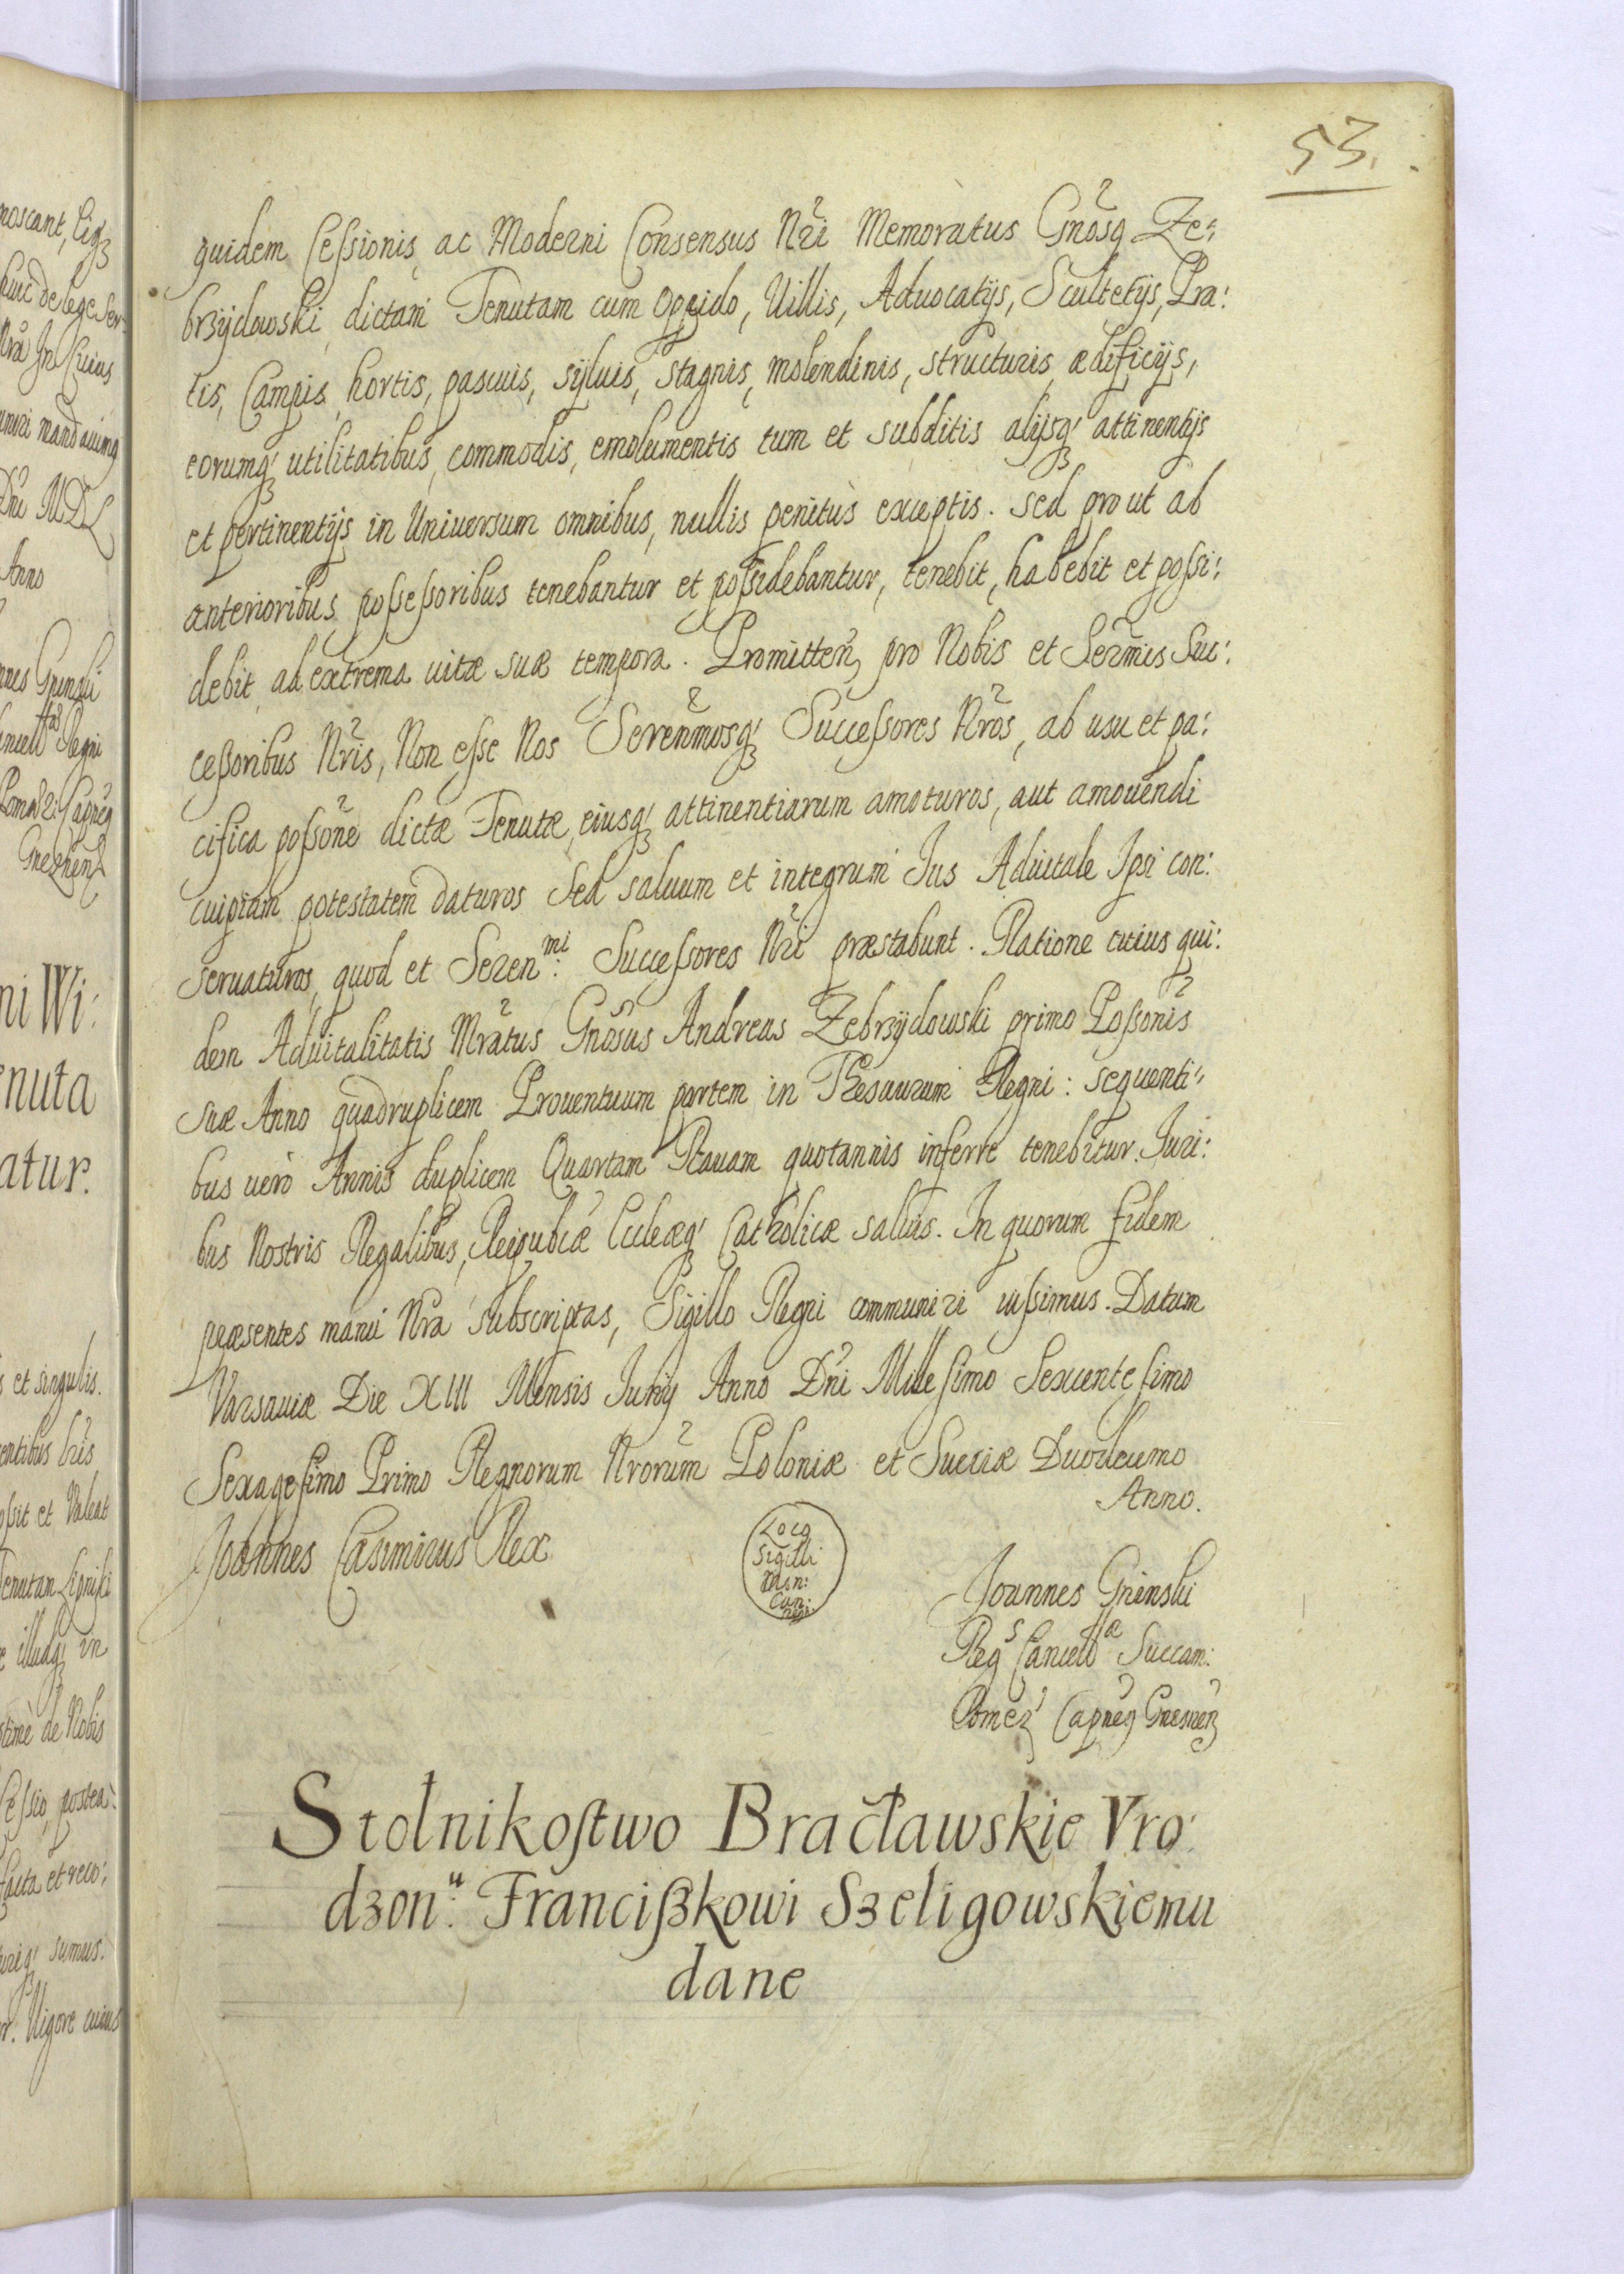 53.
quidem Cessionis, ac Moderni Consensus Nri Memoratus Gnosq Ze:
brzydowski, dictam Tenutam cum Oppido, Uillis, Aduocatijs, Scultetijs, Pra:
tis, Campis, hortis, pascuis, syluis, Stagnis, molendinis, structuris, ædificijs,
eorumq utilitatibus, commodis, emolumentis tum et subditis alijsq attinentijs
et pertinentijs in Uniuersum omnibus, nullis penitùs exceptis. Sed prout ab
anterioribus possessoribus tenebantur et possidebantur, tenebit, habebit et possi:
debit, ad extrema uitæ suæ tempora. Promitten, pro Nobis et Sermis Suc:
cessoribus Nris, Non esse Nos Serenmosq Successores Nros, ab usu et pa:
cifica possone dictæ Tenutæ, eiusq attinentiarum amoturos, aut amouendi
cuipiam potestatem daturos Sed saluum et integrum Jus Aduitale Ipsi con:
seruaturos, quod et Seren:mi Successores Nri præstabunt. Ratione cuius qui:
dem Aduitalitatis Mratus Gnosus Andreas Zebrzydowski primo Possonis
suæ Anno quadruplicem Prouentuum partem in Thesaurum Regni: sequenti:
bus uerò Annis duplicem Quartam Rauam quotannis inferre tenebitur. Juri:
bus Nostris Regalibus, Reipublcæ Eccleæq Catholicæ saluis. In quorum fidem
præsentes manu Nra subscriptas, Sigillo Regni communiri iussimus. Datum
Varsauiæ Die XIII Mensis Junij Anno Dni Millesimo Sexcentesimo
Sexagesimo Primo Regnorum Nrorum Poloniæ et Sueciæ Duodecimo
Anno.
Joannes Casimirus Rex
Locq
Sigilli
Min:
Can:
Regni.
Joannes Grinski
Regs Cancellæ Succam:
Pomer Capneq Gnesnen
Stolnikostwo Bracławskie Vro:
dzonu: Franciszkowi Szeligowskiemu
dane